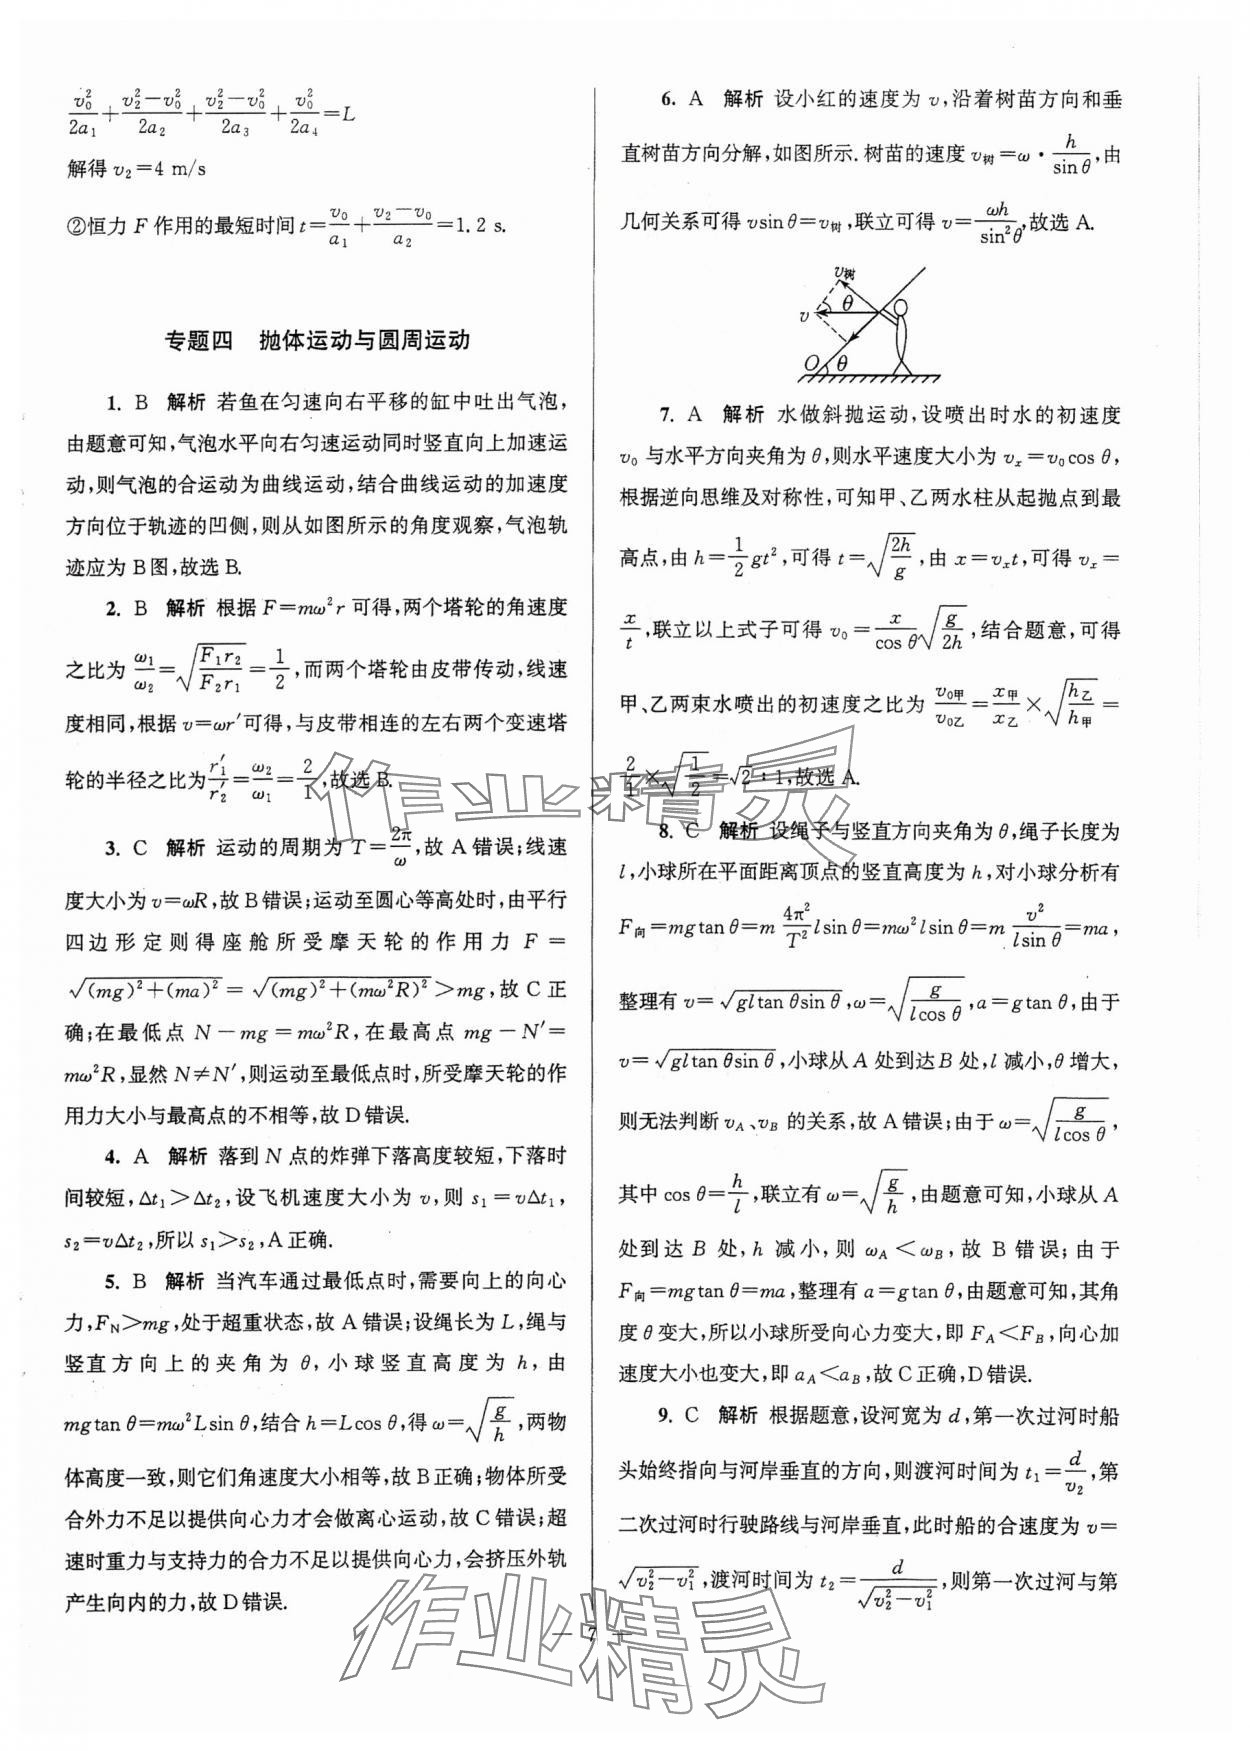 v₀²/2a₁+(v₂²−v₀²)/2a₂+(v₂²−v₀²)/2a₃+v₀²/2a₄=L
解得 v₂=4 m/s
②恒力 F 作用的最短时间 t=v₀/a₁+(v₂−v₀)/a₂=1.2 s.
专题四 抛体运动与圆周运动
1. B 解析 若鱼在匀速向右平移的缸中吐出气泡,
由题意可知,气泡水平向右匀速运动同时竖直向上加速运
动,则气泡的合运动为曲线运动,结合曲线运动的加速度
方向位于轨迹的凹侧,则从如图所示的角度观察,气泡轨
迹应为 B 图,故选 B.
2. B 解析 根据 F=mω²r 可得,两个塔轮的角速度
之比为 ω₁/ω₂=√(F₁r₂/F₂r₁)=1/2,而两个塔轮由皮带传动,线速
度相同,根据 v=ωr′可得,与皮带相连的左右两个变速塔
轮的半径之比为 r₁′/r₂′=ω₂/ω₁=2/1,故选 B.
3. C 解析 运动的周期为 T=2π/ω,故 A 错误;线速
度大小为 v=ωR,故 B 错误;运动至圆心等高处时,由平行
四边形定则得座舱所受摩天轮的作用力 F =
√((mg)²+(ma)²) = √((mg)²+(mω²R)²)>mg,故 C 正
确;在最低点 N−mg=mω²R,在最高点 mg−N′=
mω²R,显然 N≠N′,则运动至最低点时,所受摩天轮的作
用力大小与最高点的不相等,故 D 错误.
4. A 解析 落到 N 点的炸弹下落高度较短,下落时
间较短,Δt₁>Δt₂,设飞机速度大小为 v,则 s₁=vΔt₁,
s₂=vΔt₂,所以 s₁>s₂,A 正确.
5. B 解析 当汽车通过最低点时,需要向上的向心
力,F_N>mg,处于超重状态,故 A 错误;设绳长为 L,绳与
竖直方向上的夹角为 θ,小球竖直高度为 h,由
mgtan θ=mω²Lsin θ,结合 h=Lcos θ,得 ω=√(g/h),两物
体高度一致,则它们角速度大小相等,故 B 正确;物体所受
合外力不足以提供向心力才会做离心运动,故 C 错误;超
速时重力与支持力的合力不足以提供向心力,会挤压外轨
产生向内的力,故 D 错误.
6. A 解析 设小红的速度为 v,沿着树苗方向和垂
直树苗方向分解,如图所示.树苗的速度 v树=ω·h/sin θ,由
几何关系可得 vsin θ=v树,联立可得 v=ωh/sin²θ,故选 A.
v树
θ
v
O θ
7. A 解析 水做斜抛运动,设喷出时水的初速度
v₀ 与水平方向夹角为 θ,则水平速度大小为 vₓ=v₀cos θ,
根据逆向思维及对称性,可知甲、乙两水柱从起抛点到最
高点,由 h=1/2 gt²,可得 t=√(2h/g),由 x=vₓt,可得 vₓ=
x/t,联立以上式子可得 v₀=x/cos θ √(g/2h),结合题意,可得
甲、乙两束水喷出的初速度之比为 v₀甲/v₀乙=x甲/x乙×√(h乙/h甲)=
2/1×√(1/2)=√2∶1,故选 A.
8. C 解析 设绳子与竖直方向夹角为 θ,绳子长度为
l,小球所在平面距离顶点的竖直高度为 h,对小球分析有
F向=mgtan θ=m 4π²/T² lsin θ=mω²lsin θ=m v²/(lsin θ)=ma,
整理有 v=√(gltan θsin θ),ω=√(g/(lcos θ)),a=gtan θ,由于
v=√(gltan θsin θ),小球从 A 处到达 B 处,l 减小,θ 增大,
则无法判断 v_A、v_B 的关系,故 A 错误;由于 ω=√(g/(lcos θ)),
其中 cos θ=h/l,联立有 ω=√(g/h),由题意可知,小球从 A
处到达 B 处,h 减小,则 ω_A<ω_B,故 B 错误;由于
F向=mgtan θ=ma,整理有 a=gtan θ,由题意可知,其角
度 θ 变大,所以小球所受向心力变大,即 F_A<F_B,向心加
速度大小也变大,即 a_A<a_B,故 C 正确,D 错误.
9. C 解析 根据题意,设河宽为 d,第一次过河时船
头始终指向与河岸垂直的方向,则渡河时间为 t₁=d/v₂,第
二次过河时行驶路线与河岸垂直,此时船的合速度为 v=
√(v₂²−v₁²),渡河时间为 t₂=d/√(v₂²−v₁²),则第一次过河与第
— 7 —
作业精灵
作业精灵